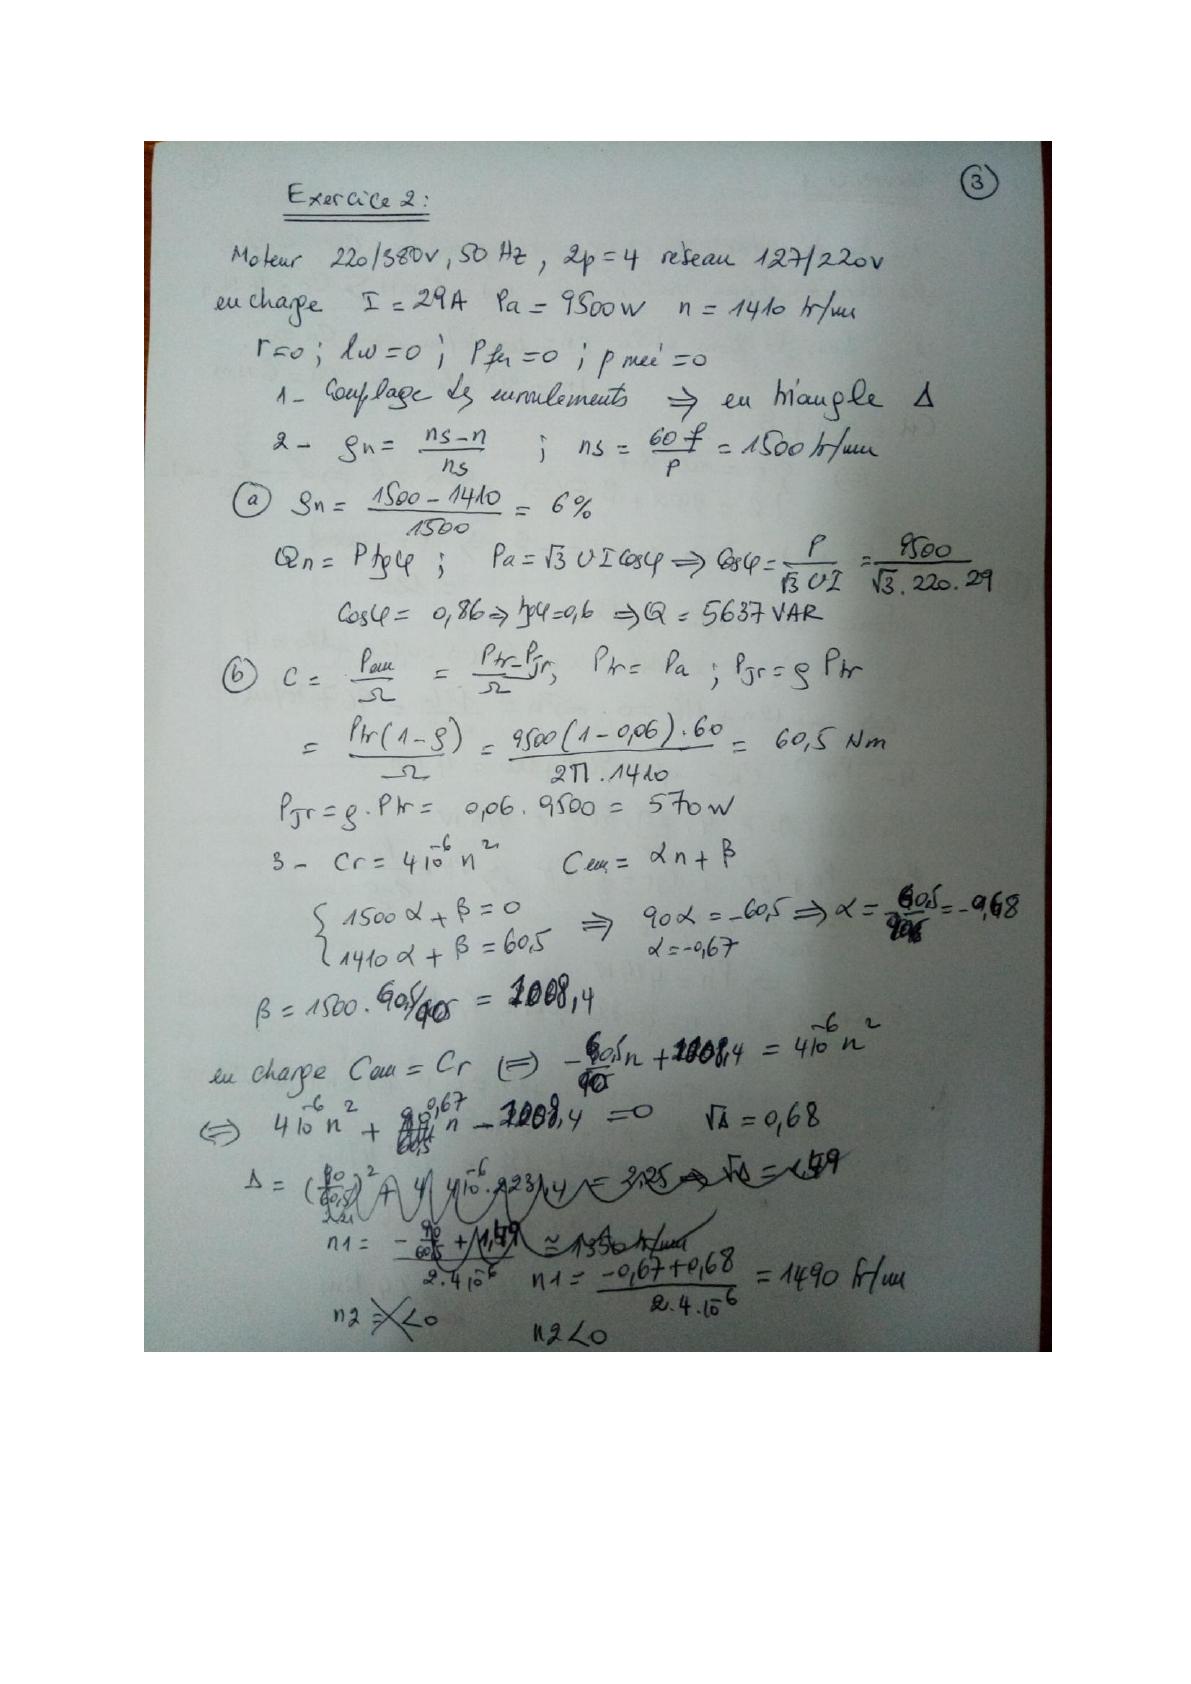 3
Exercice 2:
Moteur 220/380V, 50 Hz, 2p=4 réseau 127/220V
en charge I = 29A Pa = 9500W n = 1410 tr/mn
r=0 ; lω=0 ; Pfer=0 ; p méc=0
1- Couplage des enroulements ⇒ en triangle Δ
2- gn = (ns-n)/ns ; ns = 60f/p = 1500 tr/mn
(a) gn = (1500-1410)/1500 = 6%
Qn = P tgφ ; Pa = √3 UI cosφ ⇒ cosφ = P/(√3 UI) = 9500/(√3.220.29)
cosφ = 0,86 ⇒ tgφ=0,6 ⇒ Q = 5637 VAR
(b) C = Pem/Ω = (Ptr-Pjr)/Ω, Ptr = Pa ; Pjr = g Ptr
= Ptr(1-g)/Ω = 9500(1-0,06).60/(2π.1410) = 60,5 Nm
Pjr = g.Ptr = 0,06.9500 = 570W
3- Cr = 4 10^-6 n^2 Cem = αn + β
{ 1500α + β = 0
1410α + β = 60,5 ⇒ 90α = -60,5 ⇒ α = 60,5/90 = -0,68
α = -0,67
β = 1500. 60,5/90 = 1008,4
en charge Cem = Cr ⇔ -60,5/90 n + 1008,4 = 4 10^-6 n^2
⇔ 4 10^-6 n^2 + 0,67 n - 1008,4 = 0 √Δ = 0,68
n1 = (-0,67+0,68)/(2.4.10^-6) = 1490 tr/mn
n2 <0
n2<0